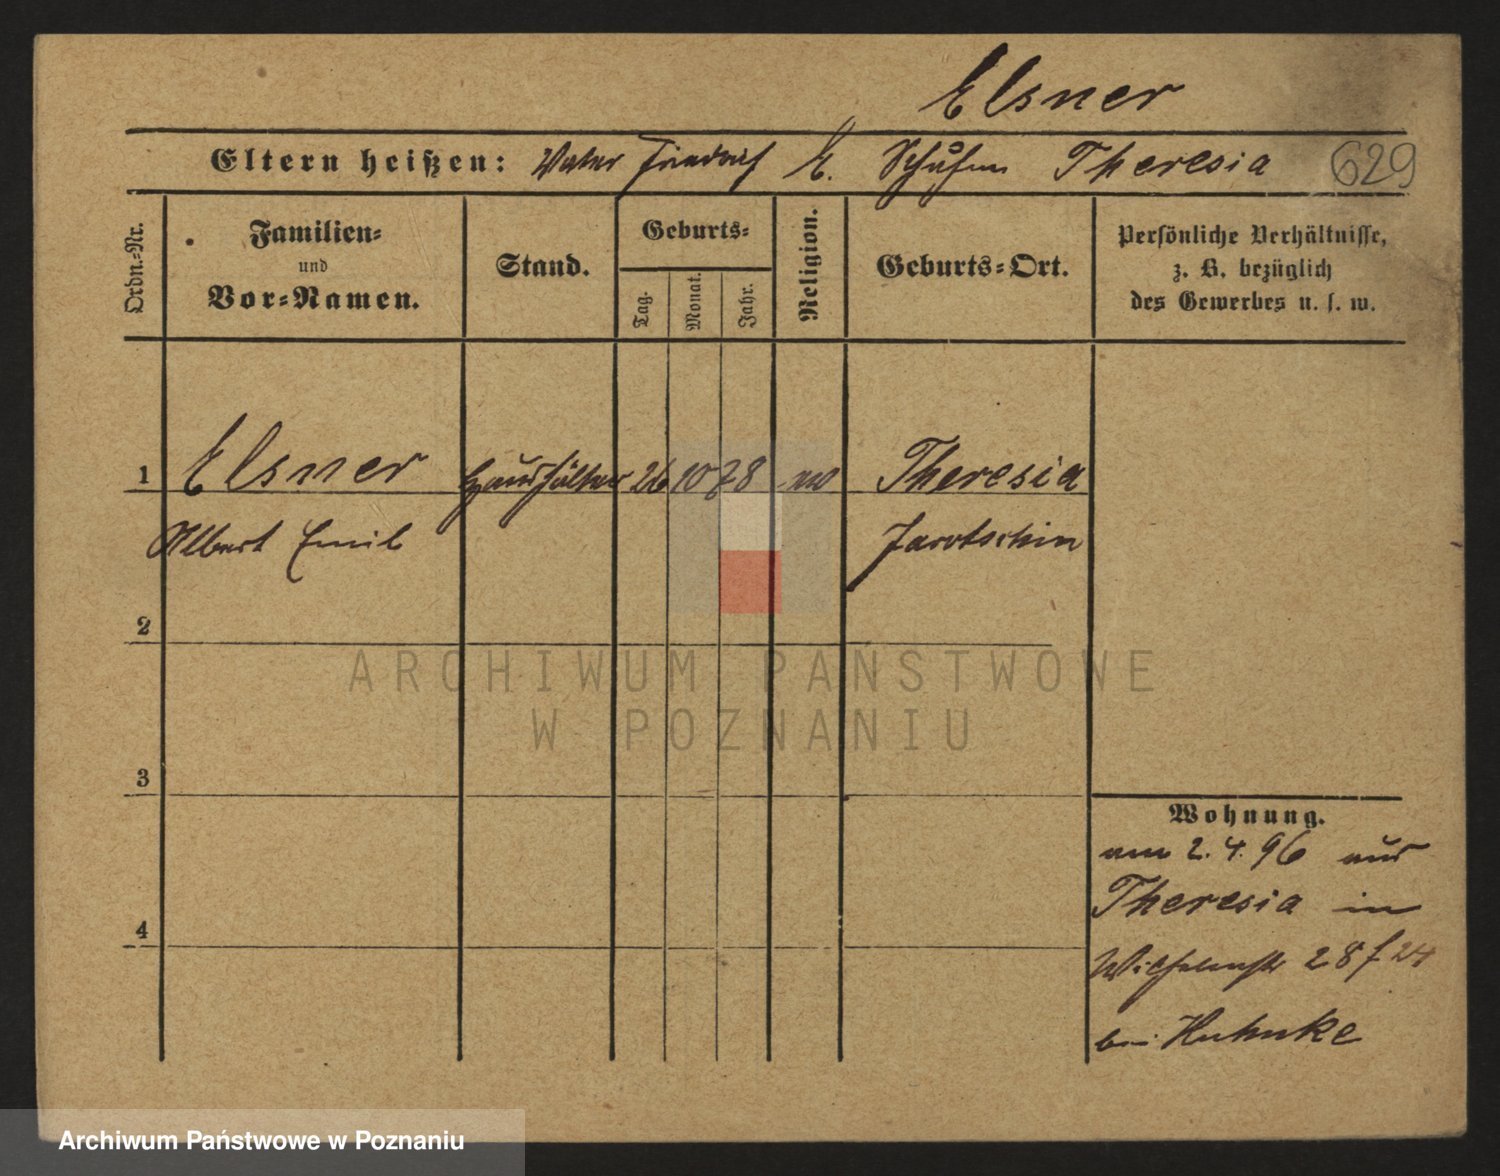 Elsner
Eltern heißen: Vater Friedrich E. Theresia 629
Ordn.-Nr.
Familien-
und
Vor-Namen.
Stand.
Geburts-
Tag.
Monat.
Jahr.
Religion.
Geburts-Ort.
Persönliche Verhältnisse,
z. B. bezüglich
des Gewerbes u. s. w.
1 Elsner Haushälter 26 10 78 ev Theresia
Albert Emil Jarotschin
2
3
4
Wohnung.
am 2.4.96 aus
Theresia in
Wilhelmstr 28 f 24
bei Huhnke
ARCHIWUM PAŃSTWOWE
W POZNANIU
Archiwum Państwowe w Poznaniu